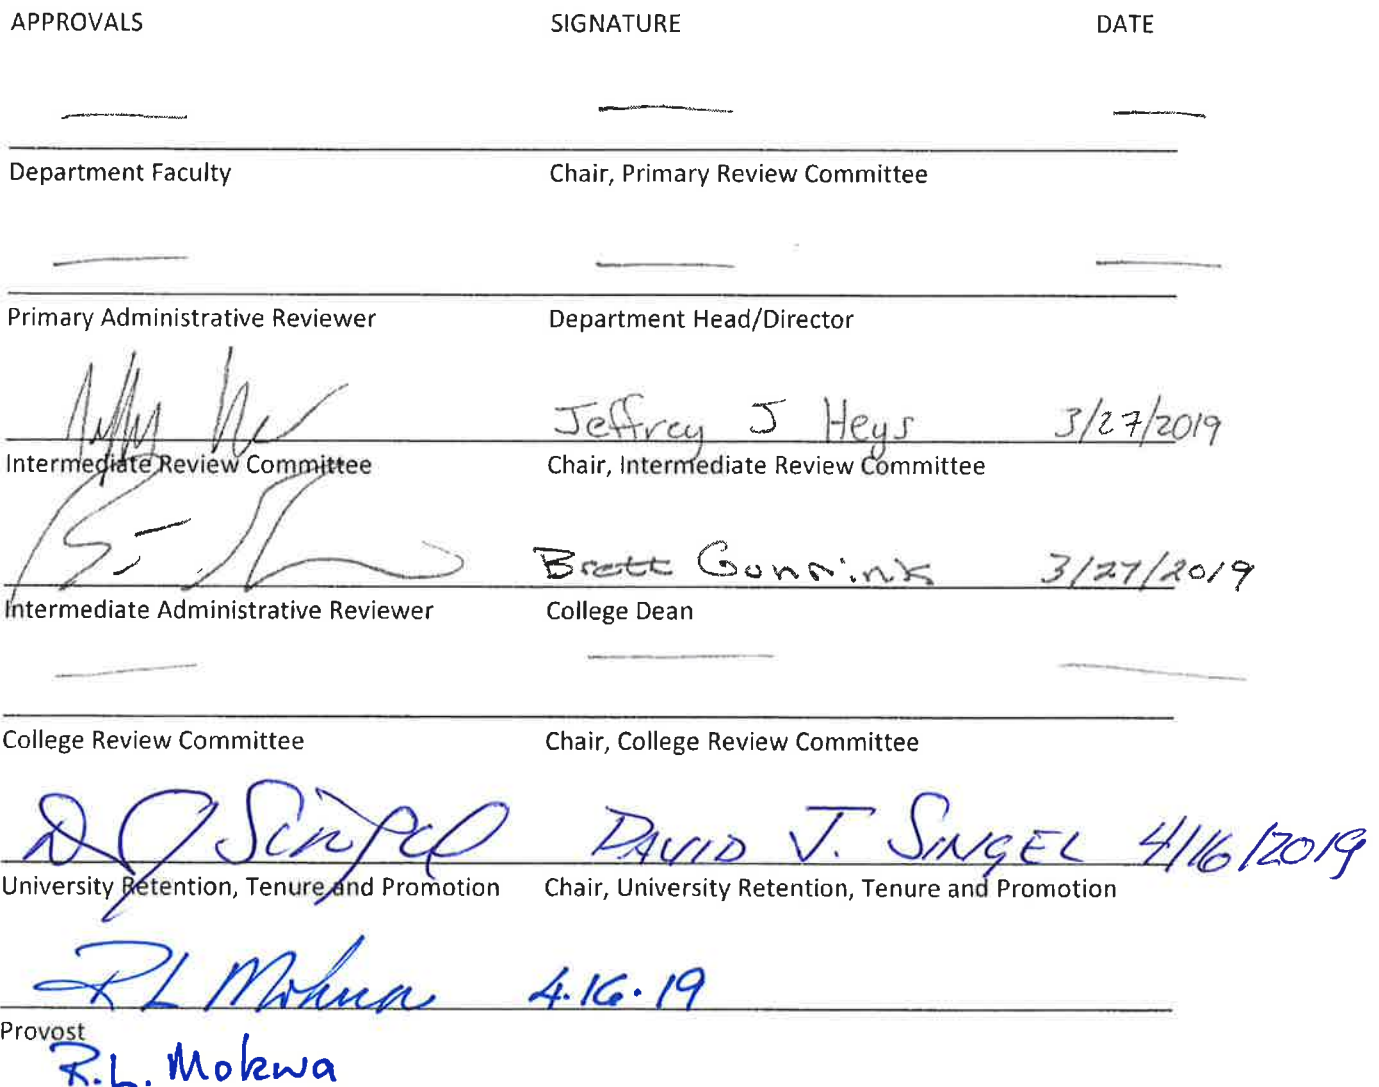 APPROVALS SIGNATURE DATE
— — —
Department Faculty Chair, Primary Review Committee
— — —
Primary Administrative Reviewer Department Head/Director
Jeffrey J Heys 3/27/2019
Intermediate Review Committee Chair, Intermediate Review Committee
Brett Gunnink 3/27/2019
Intermediate Administrative Reviewer College Dean
— — —
College Review Committee Chair, College Review Committee
D J Singel DAVID J. SINGEL 4/16/2019
University Retention, Tenure and Promotion Chair, University Retention, Tenure and Promotion
RL Mokwa 4.16.19
Provost
R.L. Mokwa